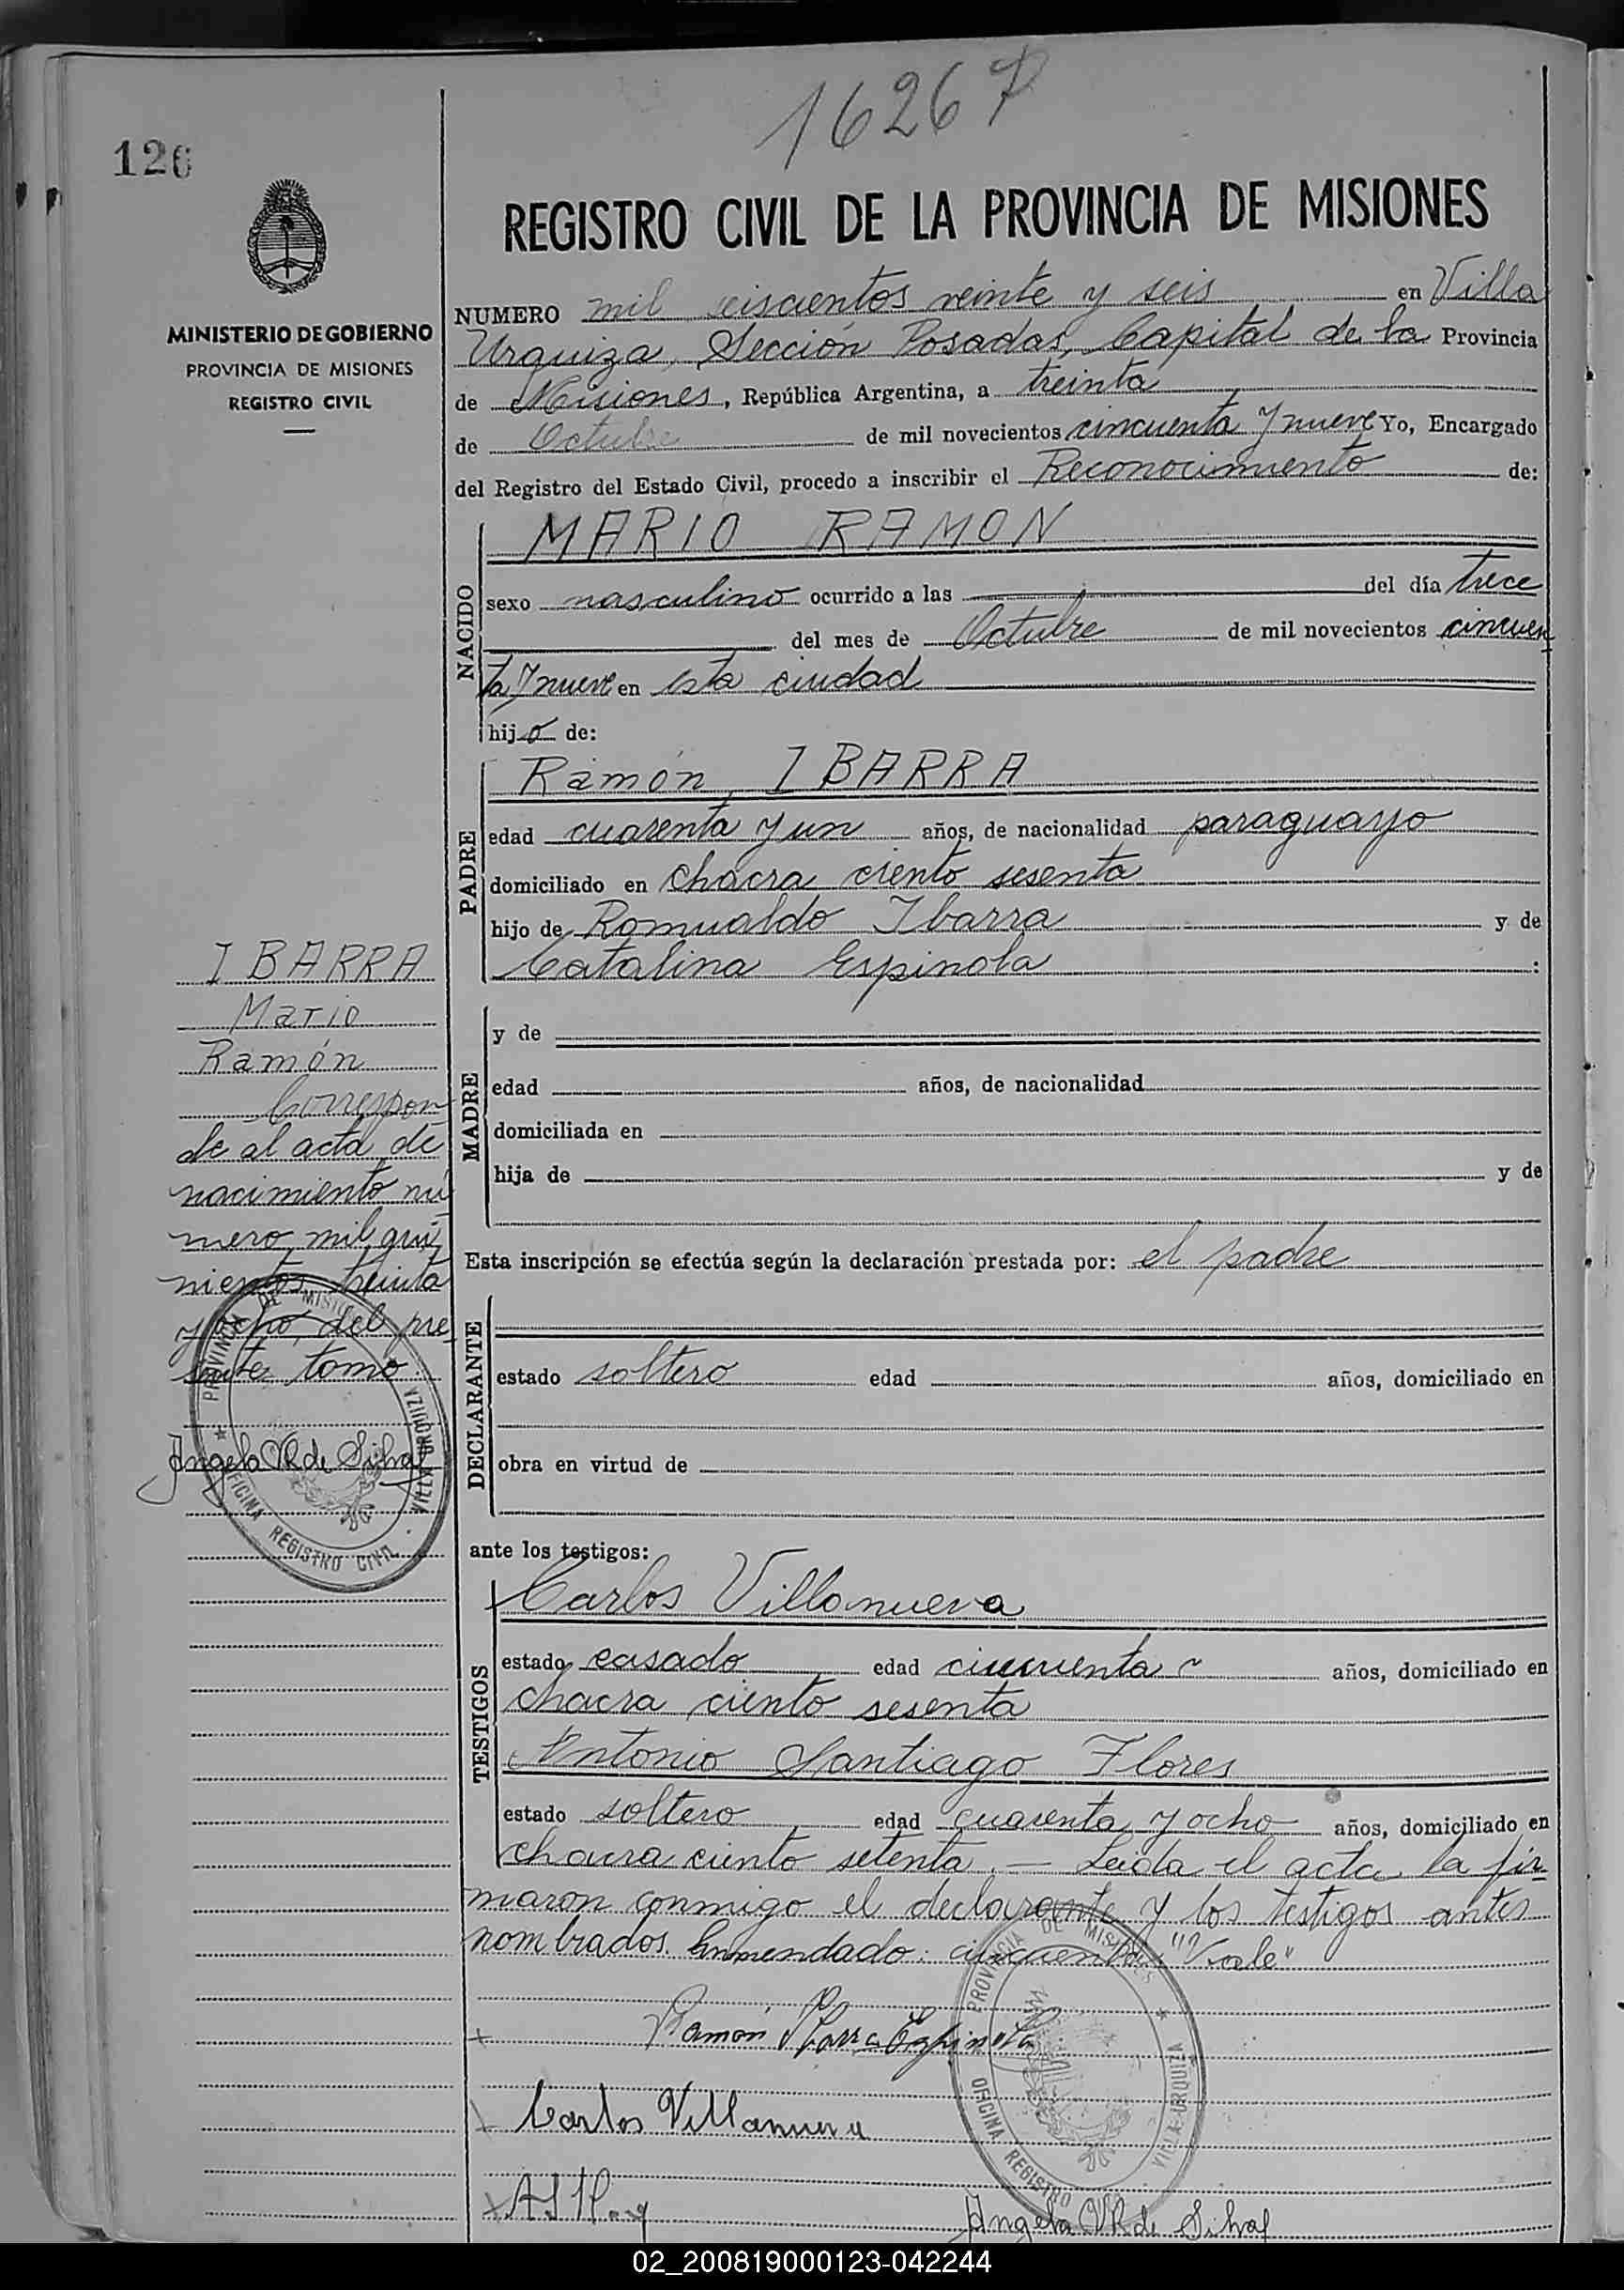 16267
126
REGISTRO CIVIL DE LA PROVINCIA DE MISIONES
MINISTERIO DE GOBIERNO
PROVINCIA DE MISIONES
REGISTRO CIVIL
NUMERO mil seiscientos veinte y seis en Villa
Urquiza, Sección Posadas, Capital de la Provincia
de Misiones, República Argentina, a treinta
de Octubre de mil novecientos cincuenta y nueve Yo, Encargado
del Registro del Estado Civil, procedo a inscribir el Reconocimiento de:
NACIDO
MARIO RAMON
sexo masculino ocurrido a las del día trece
del mes de Octubre de mil novecientos cincuen
ta y nueve en esta ciudad
hijo de:
PADRE
Ramón IBARRA
edad cuarenta y un años, de nacionalidad paraguayo
domiciliado en chacra ciento sesenta
hijo de Romualdo Ibarra y de
Catalina Espinola :
MADRE
y de
edad años, de nacionalidad
domiciliada en
hija de y de
Esta inscripción se efectúa según la declaración prestada por: el padre
DECLARANTE
estado soltero edad años, domiciliado en
obra en virtud de
ante los testigos:
TESTIGOS
Carlos Villanueva
estado casado edad cincuenta años, domiciliado en
chacra ciento sesenta
Antonio Santiago Flores
estado soltero edad cuarenta y ocho años, domiciliado en
chacra ciento setenta. — Leída el acta, la fir-
maron conmigo el declarante y los testigos antes
nombrados. Enmendado: cincuenta "Vale"
Ramón Ibarra Espinola
Carlos Villanueva
Angela VR de Silva
IBARRA
Mario
Ramón
Correspon
de al acta de
nacimiento nú
mero mil qui
nientos treinta
y ocho, del pre-
sente tomo.
Angela VR de Silva
PROVINCIA DE MISIONES
VILLA URQUIZA
OFICINA REGISTRO CIVIL
PROVINCIA DE MISIONES
VILLA URQUIZA
OFICINA REGISTRO
02_200819000123-042244